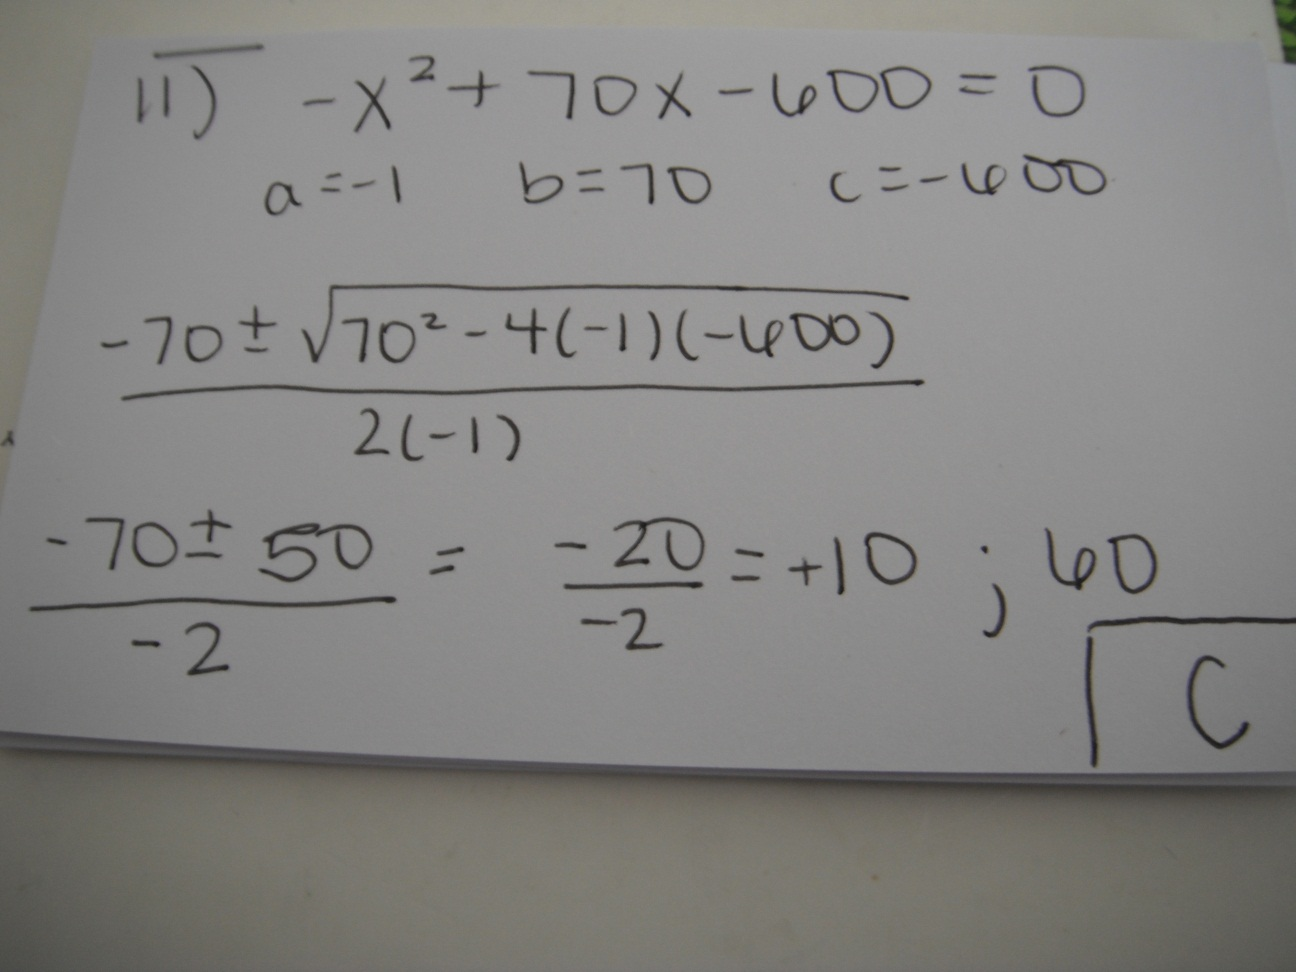 11) -x² + 70x - 600 = 0
a = -1 b = 70 c = -600
-70 ± √70² - 4(-1)(-600)
2(-1)
-70 ± 50 = -20 = +10 ; 60
-2 -2
C